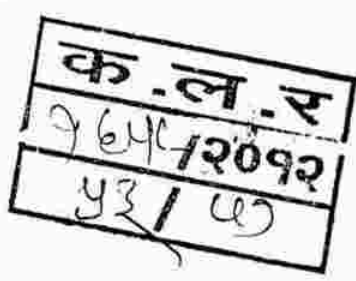 क.ल.र
१६५५/२०१२
५३/५७